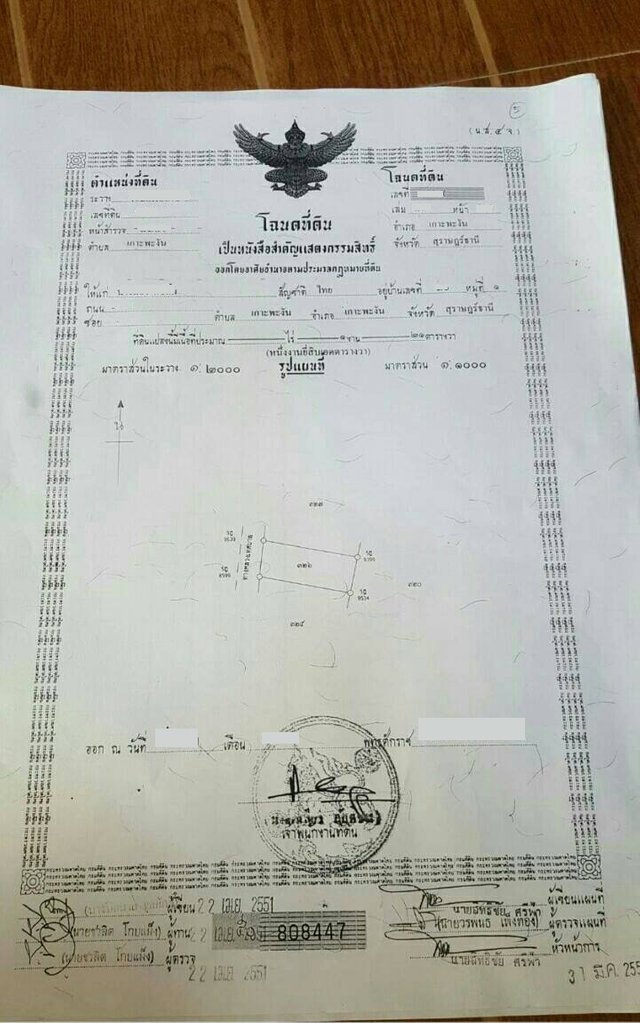 (น.ส.๔ จ)
ตำแหน่งที่ดิน
ระวาง
เลขที่ดิน
หน้าสำรวจ
ตำบล เกาะพะงัน
โฉนดที่ดิน
เลขที่
เล่ม หน้า
อำเภอ เกาะพะงัน
จังหวัด สุราษฎร์ธานี
โฉนดที่ดิน
เป็นหนังสือสำคัญแสดงกรรมสิทธิ์
ออกโดยอาศัยอำนาจตามประมวลกฎหมายที่ดิน
ให้แก่ สัญชาติ ไทย อยู่บ้านเลขที่ หมู่ที่ ๑
ถนน
ซอย ตำบล เกาะพะงัน อำเภอ เกาะพะงัน จังหวัด สุราษฎร์ธานี
ที่ดินแปลงนี้มีเนื้อที่ประมาณ ไร่ ๑ งาน ๒๑ ตารางวา
(หนึ่งงานยี่สิบเอดตารางวา)
มาตราส่วนในระวาง ๑:๒๐๐๐ รูปแผนที่ มาตราส่วน ๑:๑๐๐๐
น
๓๒๗
๓๒๖
๓๒๐
๓๒๕
ออก ณ วันที่ เดือน พุทธศักราช
เจ้าพนักงานที่ดิน
ผู้เขียน 22 เม.ย. 2551
(นายชวลิต โกยแก้ง) ผู้ทาน 22 เม.ย. 808447
(นายชวลิต โกยแก้ง) ผู้ตรวจ
22 เม.ย. 2551
นายสิทธิชัย ศรีฟ้า ผู้เขียนแผนที่
ผู้ตรวจแผนที่
หัวหน้าการ
นายสิทธิชัย ศรีฟ้า
31 มี.ค. 255